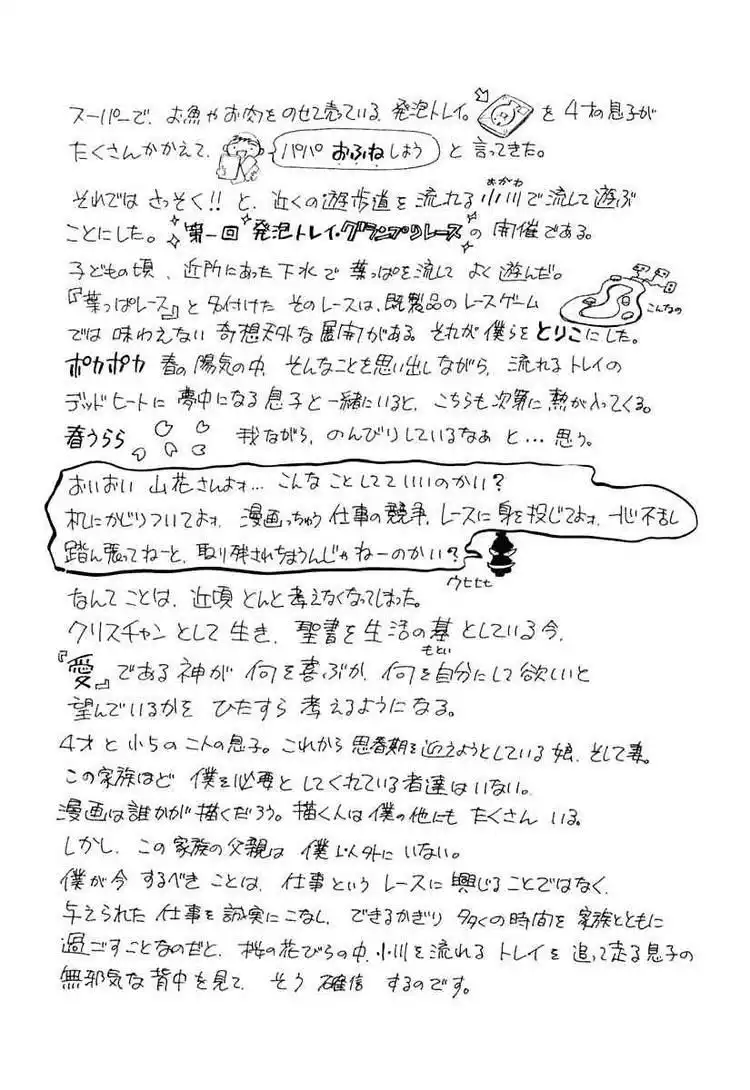 スーパーで、お魚やお肉をのせて売っている 発泡トレイ。を4才の息子が
たくさんかかえて、パパ おふねしよう と言ってきた。
それでは さっそく!!と、近くの遊歩道を流れる小川で流して遊ぶ
おがわ
ことにした。第一回 発泡トレイ・グランプリレースの開催である。
子どもの頃、近所にあった下水で 葉っぱを流して よく遊んだ。
『葉っぱレース』と名付けた そのレースは、既製品のレースゲーム
こんなの
では 味わえない 奇想天外な展開がある。それが僕らをとりこにした。
ポカポカ 春の陽気の中、そんなことを思い出しながら、流れるトレイの
デッドヒートに 夢中になる息子と一緒にいると、こちらも次第に熱が入ってくる。
春うらら 我ながら、のんびりしているなぁ と…思う。
おいおい 山花さんよォ…こんなことしてていいのかい?
机にかじりついてよォ、漫画っちゅう仕事の競争、レースに身を投じてよォ、一心不乱
踏ん張ってねーと、取り残されちまうんじゃねーのかい?
ウヒヒヒ
なんてことは、近頃とんと考えなくなってしまった。
クリスチャンとして生き、聖書を生活の基としている今、
もとい
『愛』である神が 何を喜ぶか、何を自分にして欲しいと
望んでいるかを ひたすら 考えるようになる。
4才と小5の二人の息子。これから思春期を迎えようとしている娘、そして妻。
この家族ほど 僕を必要としてくれている者達はいない。
漫画は誰かが描くだろう。描く人は僕の他にも たくさん いる。
しかし、この家族の父親は 僕以外にいない。
僕が今 するべきことは、仕事というレースに興じることではなく、
与えられた仕事を誠実にこなし、できるかぎり 多くの時間を 家族とともに
過ごすことなのだと、桜の花びらの中、小川を流れる トレイを 追って走る息子の
無邪気な背中を見て、そう 確信 するのです。